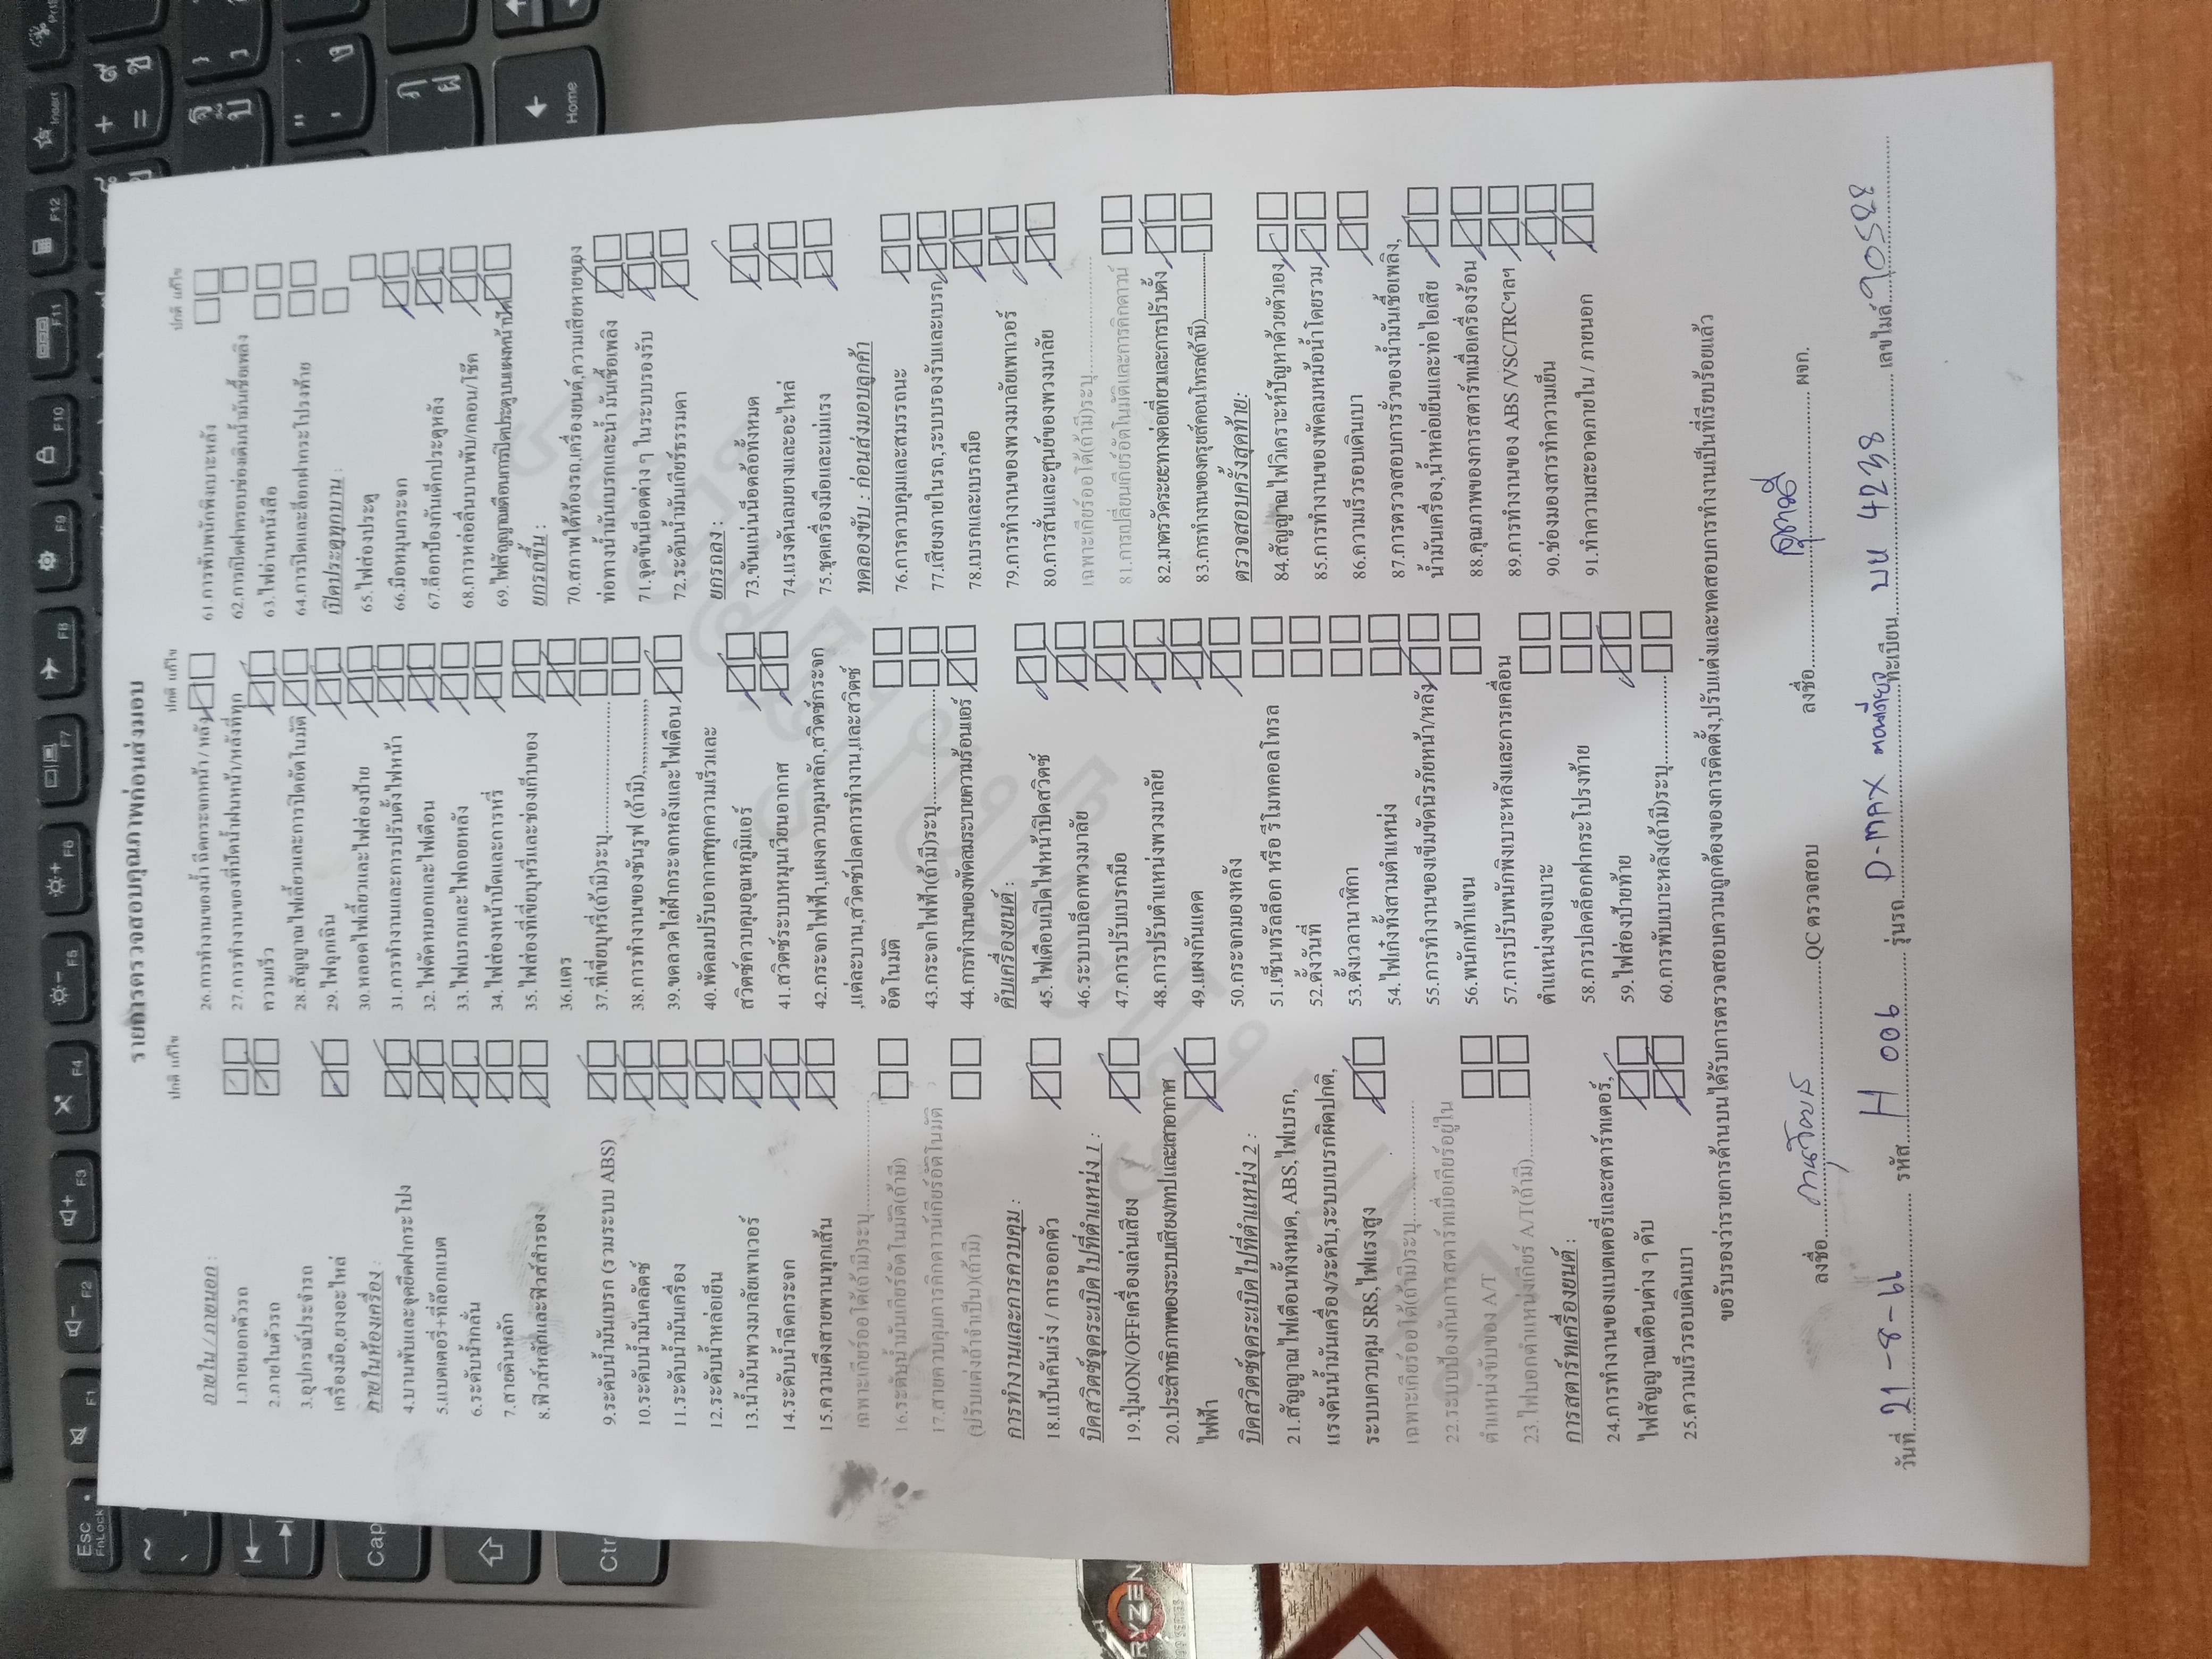 รายการตรวจสอบคุณภาพก่อนส่งมอบ
ปกติ แก้ไข
ภายใน / ภายนอก :
1.ภายนอกตัวรถ
2.ภายในตัวรถ
3.อุปกรณ์ประจำรถ
เครื่องมือ,ยางอะไหล่
ภายในห้องเครื่อง :
4.บานพับและจุดยึดฝากระโปง
5.แบตเตอรี่+ที่ล๊อกแบต
6.ระดับน้ำกลั่น
7.สายดินหลัก
8.ฟิวส์หลักและฟิวส์สำรอง
9.ระดับน้ำมันเบรก (รวมระบบ ABS)
10.ระดับน้ำมันคลัตซ์
11.ระดับน้ำมันเครื่อง
12.ระดับน้ำหล่อเย็น
13.น้ำมันพวงมาลัยเพาเวอร์
14.ระดับน้ำฉีดกระจก
15.ความตึงสายพานทุกเส้น
เฉพาะเกียร์ออโต้(ถ้ามี)ระบุ
16.ระดับน้ำมันเกียร์อัตโนมัติ(ถ้ามี)
17.สายควบคุมการคิกดาวน์เกียร์อัตโนมัติ
(ปรับแต่งถ้าจำเป็น)(ถ้ามี)
การทำงานและการควบคุม :
18.แป้นคันเร่ง / การออกตัว
บิดสวิตช์จูดระเบิดไปที่ตำแหน่ง 1 :
19.ปุ่มON/OFFเครื่องเล่นเสียง
20.ประสิทธิภาพของระบบเสียง/เทปและเสาอากาศ
ไฟฟ้า
บิดสวิตช์จุดระเบิดไปที่ตำแหน่ง 2 :
21.สัญญาณไฟเตือนทั้งหมด, ABS,ไฟเบรก,
แรงดันน้ำมันเครื่อง/ระดับ,ระบบเบรกผิดปกติ,
ระบบควบคุม SRS,ไฟแรงสูง
เฉพาะเกียร์ออโต้(ถ้ามี)ระบุ
22.ระบบป้องกันการสตาร์ทเมื่อเกียร์อยู่ใน
ตำแหน่งขับของ A/T
23.ไฟบอกตำแหน่งเกียร์ A/T(ถ้ามี)
การสตาร์ทเครื่องยนต์ :
24.การทำงานของแบตเตอรี่และสตาร์ทเตอร์,
ไฟสัญญาณเตือนต่าง ๆ ดับ
25.ความเร็วรอบเดินเบา
ปกติ แก้ไข
26.การทำงานของน้ำฉีดกระจกหน้า / หลัง
27.การทำงานของที่ปัดน้ำฝนหน้า/หลังที่ทุก
ความเร็ว
28.สัญญาณไฟเลี้ยวและการปิดอัตโนมัติ
29.ไฟฉุกเฉิน
30.หลอดไฟเลี้ยวและไฟส่องป้าย
31.การทำงานและการปรับตั้งไฟหน้า
32.ไฟตัดหมอกและไฟเตือน
33.ไฟเบรกและไฟถอยหลัง
34.ไฟส่องหน้าปัดและการหรี่
35.ไฟส่องที่เขี่ยบุหรี่และช่องเก็บของ
36.แตร
37.ที่เขี่ยบุหรี่(ถ้ามี)ระบุ
38.การทำงานของซันรูฟ (ถ้ามี)
39.ขดลวดไล่ฝ้ากระจกหลังและไฟเตือน
40.พัดลมปรับอากาศทุกความเร็วและ
สวิตช์ควบคุมอุณหภูมิแอร์
41.สวิตช์ระบบหมุนเวียนอากาศ
42.กระจกไฟฟ้า,แผงควบคุมหลัก,สวิตช์กระจก
,แต่ละบาน,สวิตช์ปลดการทำงาน,และสวิตช์
อัตโนมัติ
43.กระจกไฟฟ้า(ถ้ามี)ระบุ
44.การทำงานของพัดลมระบายความร้อนแอร์
ดับเครื่องยนต์ :
45.ไฟเตือนเปิดไฟหน้าปิดสวิตช์
46.ระบบบล็อกพวงมาลัย
47.การปรับเบรกมือ
48.การปรับตำแหน่งพวงมาลัย
49.แผงกันแดด
50.กระจกมองหลัง
51.เซ็นทรัลล็อก หรือ รีโมทคอลโทรล
52.ตั้งวันที่
53.ตั้งเวลานาฬิกา
54.ไฟเก๋งทั้งสามตำแหน่ง
55.การทำงานของเข็มขัดนิรภัยหน้า/หลัง
56.พนักเท้าแขน
57.การปรับพนักพิงเบาะหลังและการเคลื่อน
ตำแหน่งของเบาะ
58.การปลดล็อกฝากระโปรงท้าย
59.ไฟส่องป้ายท้าย
60.การพับเบาะหลัง(ถ้ามี)ระบุ
ปกติ แก้ไข
61.การพับพนักพิงเบาะหลัง
62.การเปิดฝาครอบช่องเติมน้ำมันเชื้อเพลิง
63.ไฟอ่านหนังสือ
64.การปิดและล๊อกฝากระโปรงท้าย
เปิดประตูทุกบาน :
65.ไฟส่องประตู
66.มือหมุนกระจก
67.ล็อกป้องกันเด็กประตูหลัง
68.การหล่อลื่นบานพับ/กลอน/โช๊ค
69.ไฟสัญญาณเตือนการปิดประตูบนแผงหน้าปัด
ยกรถขึ้น :
70.สภาพใต้ท้องรถ,เครื่องยนต์,ความเสียหายของ
ท่อทางน้ำมันเบรกและน้ำ มันเชื้อเพลิง
71.จุดขันน็อตต่าง ๆ ในระบบรองรับ
72.ระดับน้ำมันเกียร์ธรรมดา
ยกรถลง :
73.ขันแน่นน็อตล้อทั้งหมด
74.แรงดันลมยางและอะไหล่
75.ชุดเครื่องมือและแม่แรง
ทดลองขับ : ก่อนส่งมอบลูกค้า
76.การควบคุมและสมรรถนะ
77.เสียงภายในรถ,ระบบรองรับและเบรก
78.เบรกและเบรกมือ
79.การทำงานของพวงมาลัยเพาเวอร์
80.การสั่นและศูนย์ของพวงมาลัย
เฉพาะเกียร์ออโต้(ถ้ามี)ระบุ
81.การเปลี่ยนเกียร์อัตโนมัติและการคิกดาวน์
82.มาตรวัดระยะทางต่อเที่ยวและการปรับตั้ง
83.การทำงานของครุยส์คอนโทรล(ถ้ามี)
ตรวจสอบครั้งสุดท้าย:
84.สัญญาณไฟวิเคราะห์ปัญหาด้วยตัวเอง
85.การทำงานของพัดลมหม้อน้ำโดยรวม
86.ความเร็วรอบเดินเบา
87.การตรวจสอบการรั่วของน้ำมันเชื้อเพลิง,
น้ำมันเครื่อง,น้ำหล่อเย็นและท่อไอเสีย
88.คุณภาพของการสตาร์ทเมื่อเครื่องร้อน
89.การทำงานของ ABS /VSC/TRCฯลฯ
90.ช่องมองสารทำความเย็น
91.ทำความสะอาดภายใน / ภายนอก
ขอรับรองว่ารายการด้านบนได้รับการตรวจสอบความถูกต้องของการติดตั้ง,ปรับแต่งและทดสอบการทำงานเป็นที่เรียบร้อยแล้ว
ลงชื่อ QC ตรวจสอบ ลงชื่อ ผจก.
วันที่ 21-8-66 รหัส H 006 รุ่นรถ D-MAX ทะเบียน บน 4238 เลขไมล์ 90588
Esc FnLock F1 F2 F3 F4 F5 F6 F7 F8 F9 F10 F11 F12 Insert
Home
Cap
Ctr
RYZEN